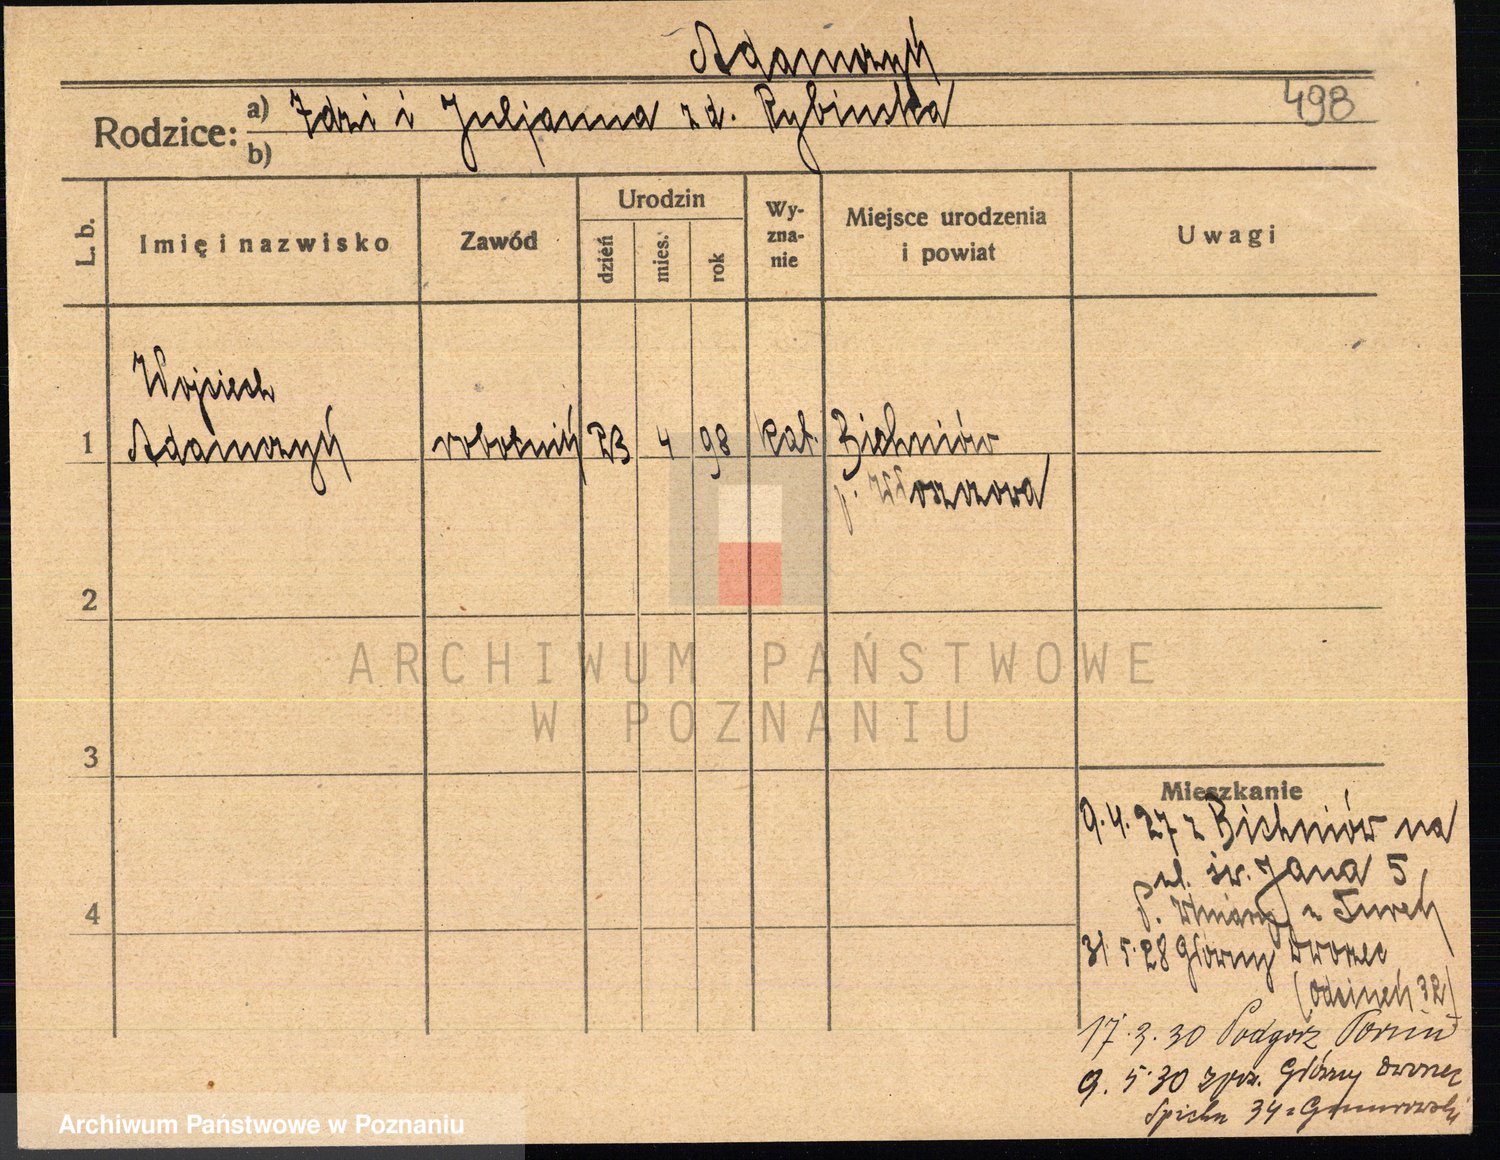 Adamczyk
498
Rodzice: a) Idzi i Juljanna z d. Rybinska
b)
L. b.
Imię i nazwisko
Zawód
Urodzin
dzień
mies.
rok
Wy-
zna-
nie
Miejsce urodzenia
i powiat
Uwagi
Wojciech
1 Adamczyk robotnik 23 4 98 kat. Bichniów
p. Włoszczowa
2
3
4
ARCHIWUM PAŃSTWOWE
W POZNANIU
Mieszkanie
9.4.27 z Bichniów na
pl. św. Jana 5
p. Turek
31.5.28 Główny Dworzec
(Odcinek 32)
17.3.30 Podgorz Toruń
9.5.30 Główny Dworzec
34
Archiwum Państwowe w Poznaniu